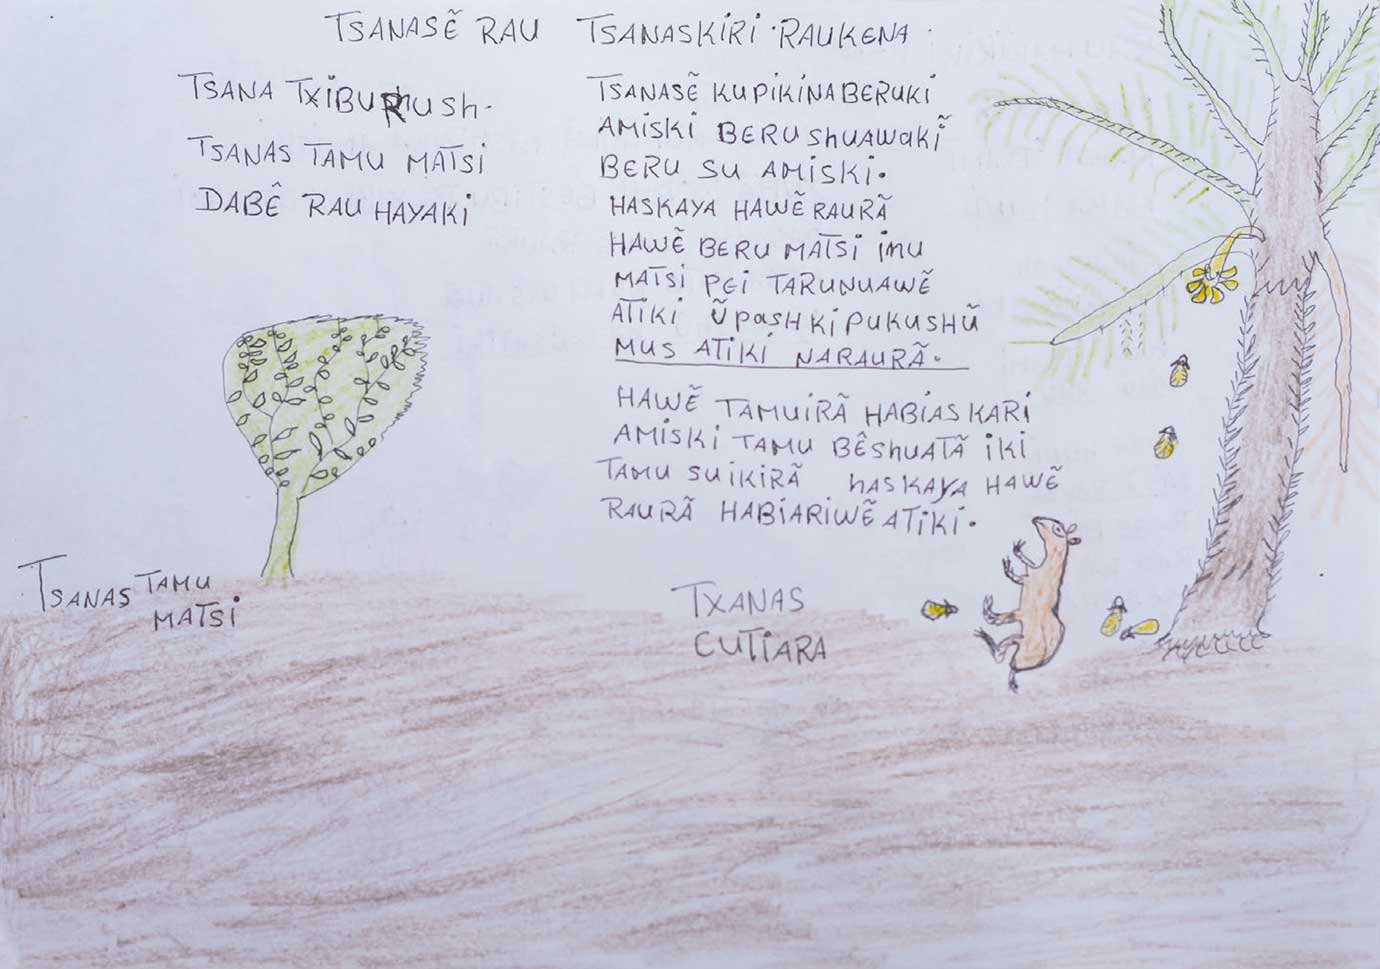 TSANASẼ RAU TSANASKIRI RAUKENA
TSANA TXIBURUSH-
TSANAS TAMU MATSI
DABÊ RAU HAYAKI
TSANASẼ KUPIKINABERUKI
AMISKI BERU ShUAWAKĨ
BERU SU AMISKI.
HASKAYA HAWẼ RAURÃ
HAWẼ BERU MATSI INU
MATSI PEI TARUNUAWẼ
ATIKI ŨPASH KI PUKUSHŨ
MUS ATIKI NARAURÃ.
HAWẼ TAMUIRÃ HABIASKARI
AMISKI TAMU BÊShUATÃ IKI
TAMU SUIKIRÃ hASKAYA HAWẼ
RAURÃ HABIARIWẼ ATIKI.
TSANAS TAMU
MATSI
TXANAS
CUTIARA